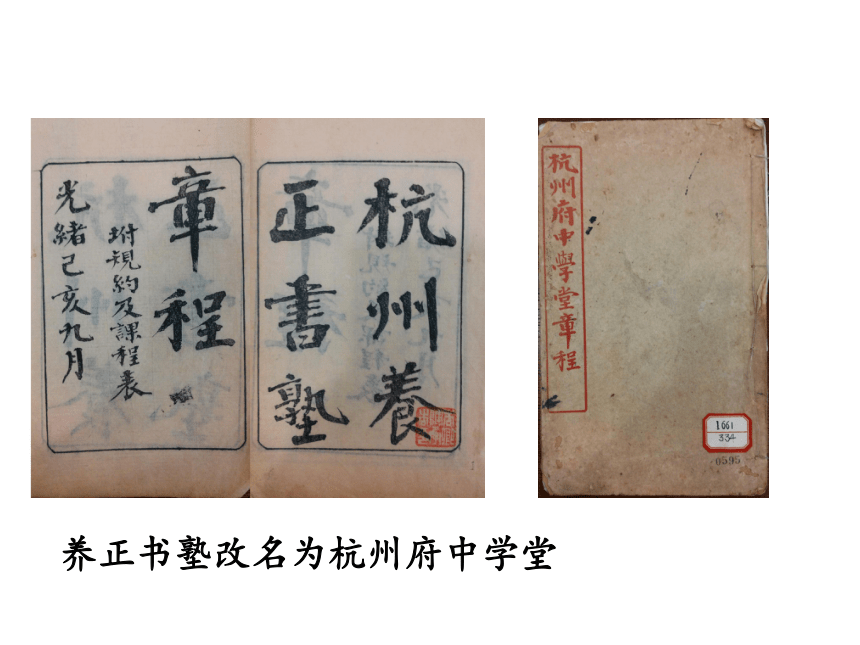 杭州養
正書塾
章程
坿規約及課程表
光緒己亥九月
杭州府中學堂章程
1661
334
0595
养正书塾改名为杭州府中学堂